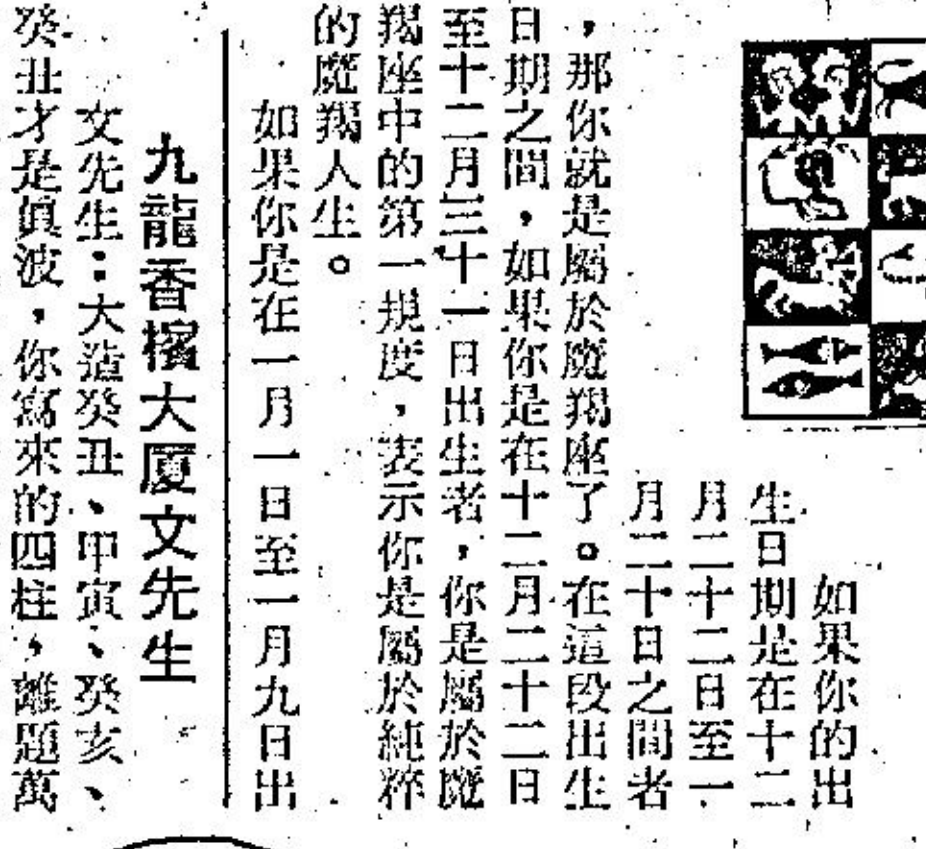 如果你的出
生日期是在十二
月二十二日至一
月二十日之間者
，那你就是屬於魔羯座了。在這段出生
日期之間，如果你是在十二月二十二日
至十二月三十一日出生者，你是屬於魔
羯座中的第一規度，表示你是屬於純粹
的魔羯人生。
如果你是在一月一日至一月九日出
九龍香檳大厦文先生
文先生：大造癸丑、甲寅、癸亥、
癸丑才是眞波，你寫來的四柱，離題萬